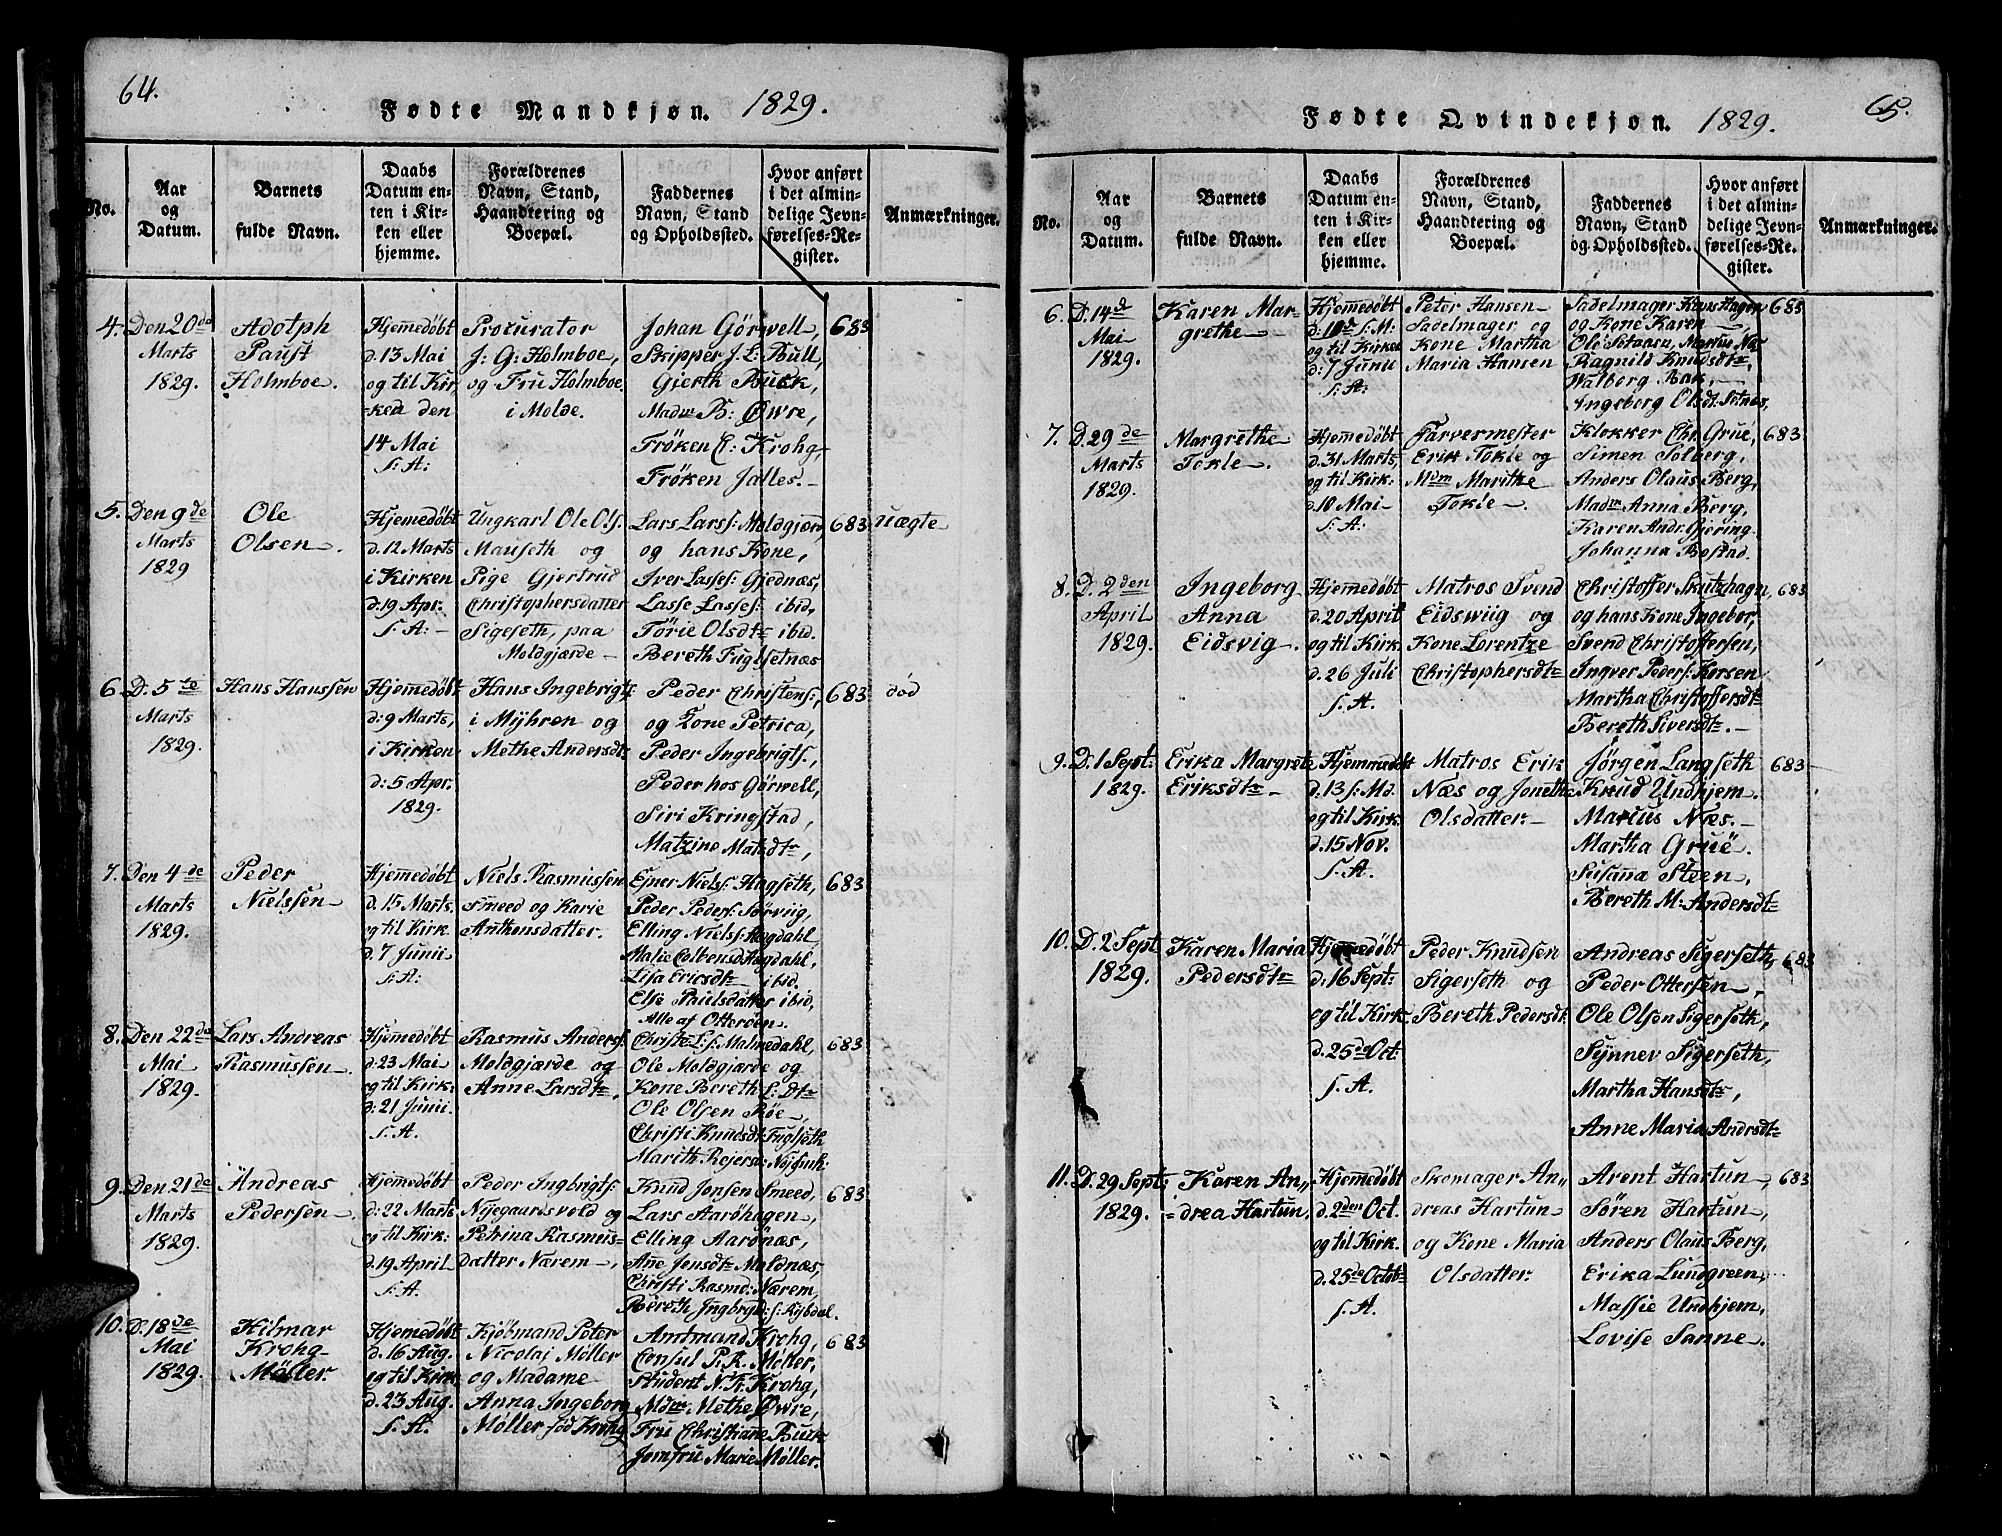 64.
Fødte Mandkjøn. 1829.
No.
Aar
og
Datum.
Barnets
fulde Navn.
Daabs
Datum en-
ten i Kir-
ken eller
hjemme.
Forældrenes
Navn, Stand,
Haandtering og
Boepæl.
Faddernes
Navn, Stand
og Opholdssted.
Hvor anført
i det almin-
delige Jevn-
førelses-Re-
gister.
Anmærkninger.
4. Den 20de
Marts
1829.
Adolph
Paust
Holmboe.
Hjemedøbt
d. 13 Mai
og til Kir,
-ken den
14 Mai
s: A:
Procurator
J: G: Holmboe,
og Fru Holmboe
i Molde.
Johan Görwell,
Skipper J. L: Bull,
Gjerth Buck,
Madm B: Øwre,
Fröken C: Krohg,
Fröken Jalles.-
683
5. Den 9de
Marts
1829
Ole
Olsen.
Hjemedøbt
d. 12 Marts
i Kirken
d: 19 Apr:
S. A: -
Ungkarl Ole Ols.
Mauseth og
Pige Gjertrud
Christophersdatter
Sigeseth, paa
Moldgjærde -
Lars Larss: Moldgjære,
og hans Kone,
Iver Lasses: Gjednæs,
Lasse Lasses: ibid,
Törie Olsdtr ibid.
Bereth Fuglsetnæs
683
uægte
6. D. 5te
Marts
1829.
Hans Hanssen
Hjemedøbt
d: 9 Marts,
i Kirken
d: 5 Apr.
1829.
Hans Ingebrigts:
i Myhren og
Methe Andersdt:
Peder Christens:,
og Kone Petrica,
Peder Ingebrigts.
Peder hos Görwell,
Siri Kringstad,
Matzine Matsdtr,
683
død
7. Den 4de
Marts
1829.
Peder
Nielssen
Hjemedøbt
d. 15 Marts.
og til Kirk.
d. 7 Junii
s: A:
Niels Rasmussen
Smeed og Karie
Anthonsdatter.
Ejner Niels: Hagseth,
Peder Peders: Sørviig,
Elling Niels: Hogdahl,
Lisa Ericsdtr ibid,
Else Paulsdatter ibid,
Alle af Otterøen.
683
8. Den 22de
Mai
1829.
Lars Andreas
Rasmussen.
Hjemedøbt
d. 23 Mai
og til Kirk:
d: 21 Junii.
s. A.
Rasmus Anders:
Moldgjærde og
Anne Larsdtr,
Christe L: s: Malmedahl,
Ole Moldgjærde og
Kone Bereth L: Dtr
Ole Olsen Röe,
Christi Knudsdt: Fuglseth
683
9. Den 21de
Marts
1829.
Andreas
Pedersen.
Hjemedøbt
d: 22 Marts
og til Kirk:
d. 19 April
s: A.
Peder Ingbrigts:
Nyegaardsvold og
Petrina Rasmus-
datter Nærem -,
Knud Jonsen Smeed,
Lars Aaröhagen,
Elling Aarönæs,
Ane Jensdtr Moldnæs,
Christi Rasmd: Nærem,
683
10. D. 18de
Mai
1829.
Hilmar
Krohg-
Möller.
Hjemedøbt
d. 16 Aug.
og til Kirk.
d. 23 Aug.
S. A.
Kjöbmand Peter
Nicolai Möller
og Madame
Anna Ingeborg
Möller född Krohg
Amtmand Krohg,
Consul P. R. Møller,
Student N. Fr. Krohg,
Mdm Methe Øwre,
Fru Christiane Buck
Jomfru Marie Møller.
683
65.
Fødte Qvindekjøn. 1829.
No.
Aar
og
Datum.
Barnets
fulde Navn.
Daabs
Datum en-
ten i Kir-
ken eller
hjemme.
Forældrenes
Navn, Stand,
Haandtering og
Boepæl.
Faddernes
Navn, Stand
og Opholdssted.
Hvor anført
i det almin-
delige Jevn-
førelses-Re-
gister.
Anmærkninger.
6. D. 14d
Mai
1829.
Karen Mar-
grethe -
Hjemedøbt
d. 19d s. M:
og til Kirken
d: 7 Junii
s: A:
Peter Hansen-
Sadelmager og
Kone Martha
Maria Hansen
Sadelmager Hans Hagen
og Kone Karen -,
Ragnild Knudsdtr,
Walborg Bak,
Ingeborg Olsdt: Sotnæs,
683
7. D. 29de
Marts
1829.
Margrethe
Tokle.
Hjemedøbt
d. 31 Marts,
og til Kirk:
d. 10 Mai-
s. A:
Farvermester
Erik Tokle og
Mdm Marithe
Tokle -.
Klokker Chr: Grue,
Simen Solberg,
Anders Olaus Berg,
Madm Anna Berg,
Karen Andr. Gjøring
Johanna Bostad.
683
8. D. 2den
April
1829.
Ingeborg
Anna
Eidsvig.
Hjemedøbt
d. 20 April
og til Kirk.
d. 26 Juli
s. A.
Matros Svend
Eidswiig og
Kone Lorentze
Christophersdtr
Christoffer Skutzhagn,
og hans Kone Ingebor,
Svend Christoffersen,
Ingver Peders: Korsen
Martha Christoffersdtr
Bereth Siversdtr. -
683
9. D. 1 Sept:
1829.
Erika Margrete
Eriksdtr-
Hjemmedøbt
d. 13 s: Md.
og til Kirk.
d. 15 Nov.
s. A.
Matros Erik
Næs og Jonetha
Olsdatter.-
Jørgen Langseth
Knud Undhjem.
Marius Næs.-
Martha Gruë.
Susana Steen,
Bereth M: Andersdtr
683
10. D. 2 Sept
1829.
Karen Maria
Pedersdtr
Hjemedøbt
d. 16 Sept:
og til Kirk
d. 25de Oct:
s. A.
Peder Knudsen
Sigerseth og
Bereth Pedersdt.
Andreas Sigerseth,
Peder Ottersen -,
Ole Olsen Sigerseth,
Synnev Sigerseth,
Martha Hansdtr,
Anne Maria Andrsdtr
683
11. D. 29 Sept:
1829.
Karen An,,
=drea Hartun.
Hjemedøbt
d. 2den Oct.
og til Kirk.
d. 25de Octob
s. A.
Skomager An,,
dreas Hartun
og Kone Maria
Olsdatter.
Arent Hartun -,
Søren Hartun,
Anders Olaus Berg,
Erika Lundgreen,
Massie Undhjem,
Lovise Sanne.
683